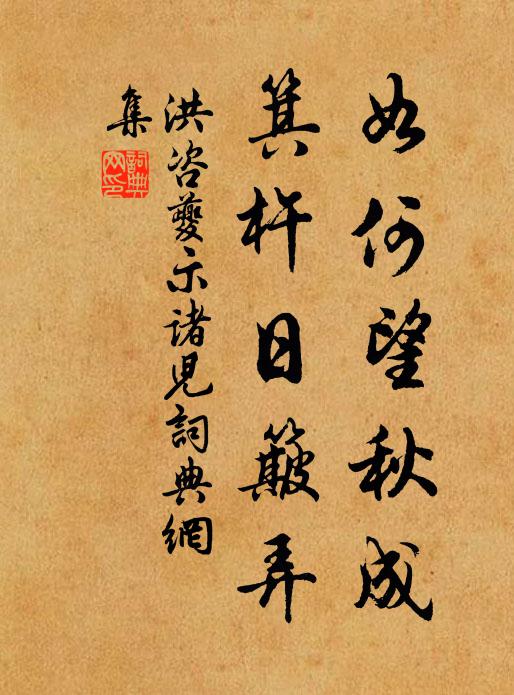 如何望秋成
箕杵日簸弄
洪咨夔示諸兒詞典網
集
詞典
网印